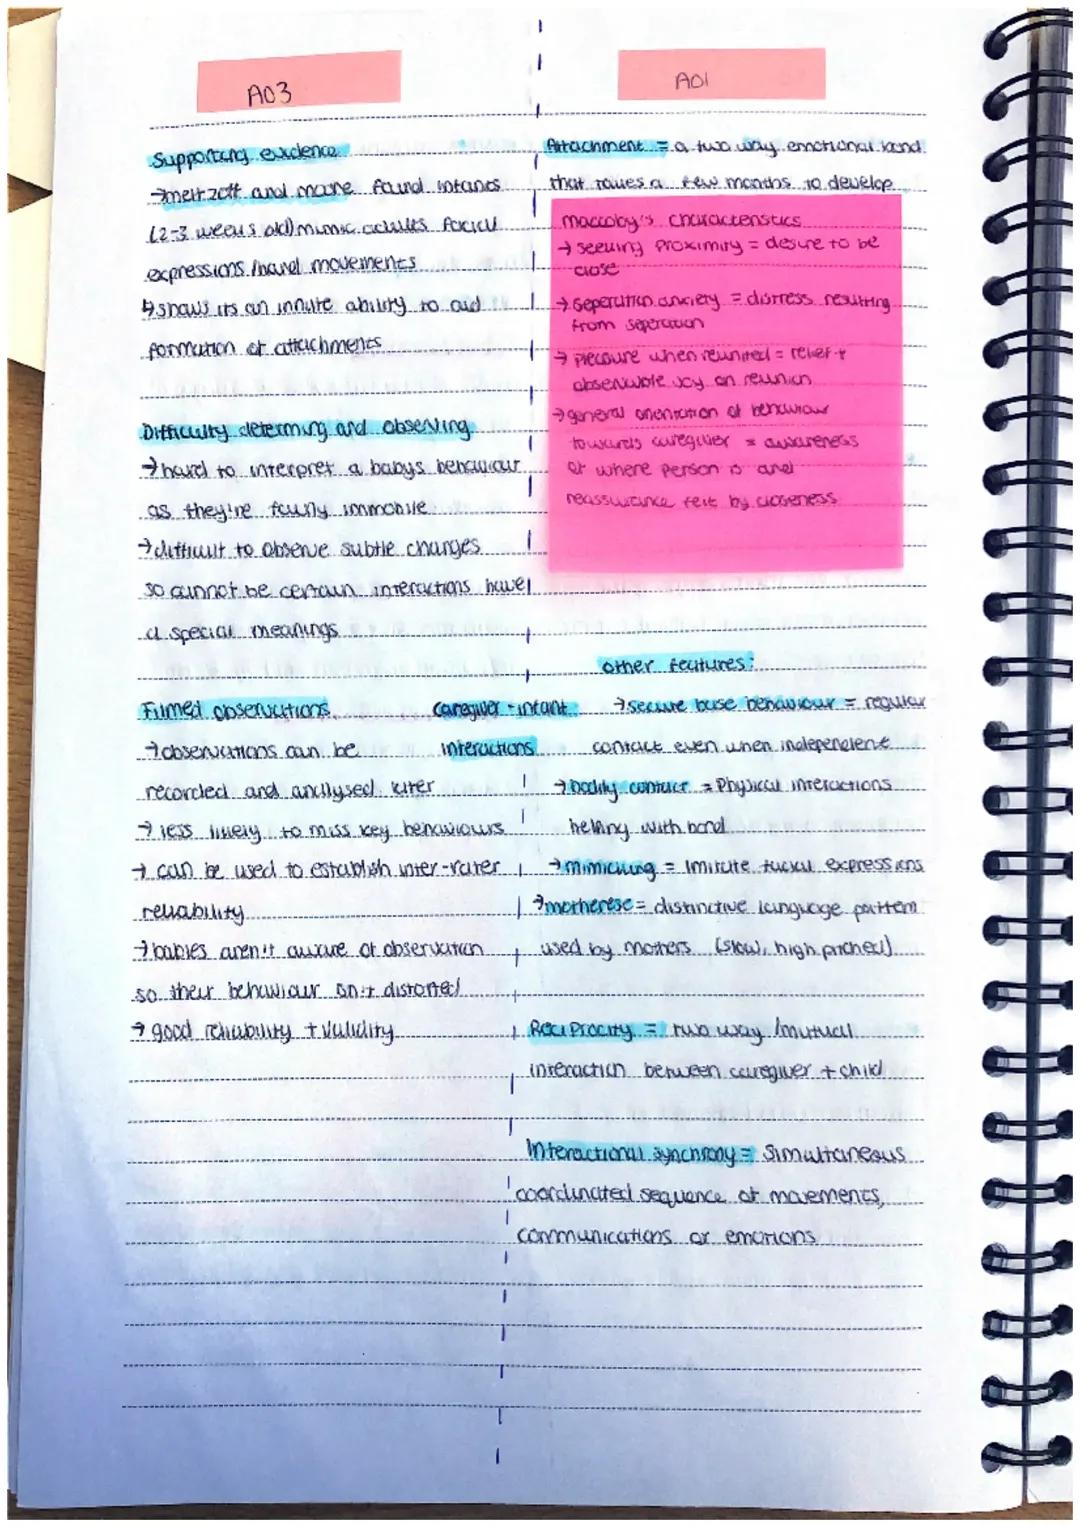 AO3
Supporting evidence
→meltzoff and moore found infants
(2-3 weeks old) mimic adults facial
expressions/hand movements
↳shows its an innate ability to aid
formation of attachments
Difficulty determing and observing
→hard to interpret a babys behaviour
as they're fairly immobile
→difficult to observe subtle changes
so cannot be certain interactions have
a special meanings
Filmed observations
→observations can be
recorded and analysed later
→ less likely to miss key behaviours
→ can be used to establish inter-rater
reliability
→babies aren't aware of observation
so their behaviour isn't distorted
→ good reliability + validity
caregiver-infant
interactions
AO1
Attachment = a two way emotional bond
that takes a few months to develop
maccoby's characteristics
→ seeking proximity = desire to be
close
→ seperation anxiety = distress resulting
from seperation
→ pleasure when reunited = relief +
observable joy on reunion
→general orientation of behaviour
towards caregiver = awareness
of where person is and
reassurance felt by closeness
other features:
→secure base behaviour = regular
contact even when independent
→bodily contact = Physical interactions
helping with bond
→mimicking = imitate facial expressions
→motherese = distinctive language pattern
used by mothers (slow, high pitched)
Reciprocity = two way/mutual
interaction between caregiver + child
Interactional synchrony = Simultaneous
coordinated sequence of movements,
communications or emotions